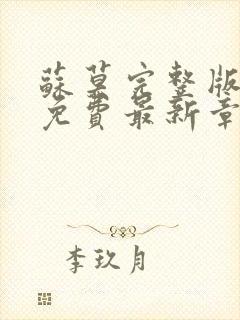 蘇葉完整版
免費最新章
李玖月